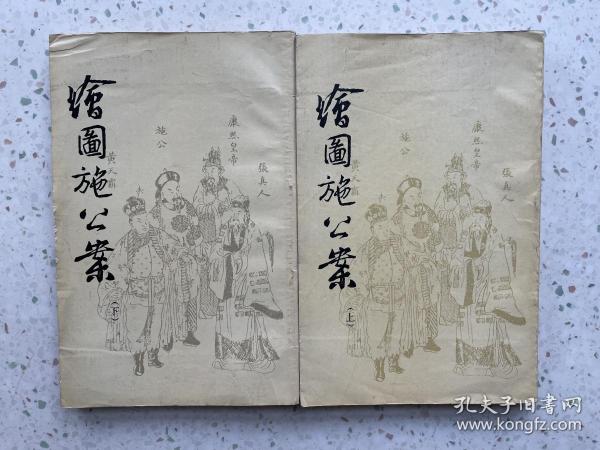 繪圖施公案
(下)
康熙皇帝
張真人
施公
黃天霸
繪圖施公案
(上)
康熙皇帝
張真人
施公
黃天霸
孔夫子旧书网
www.kongfz.com